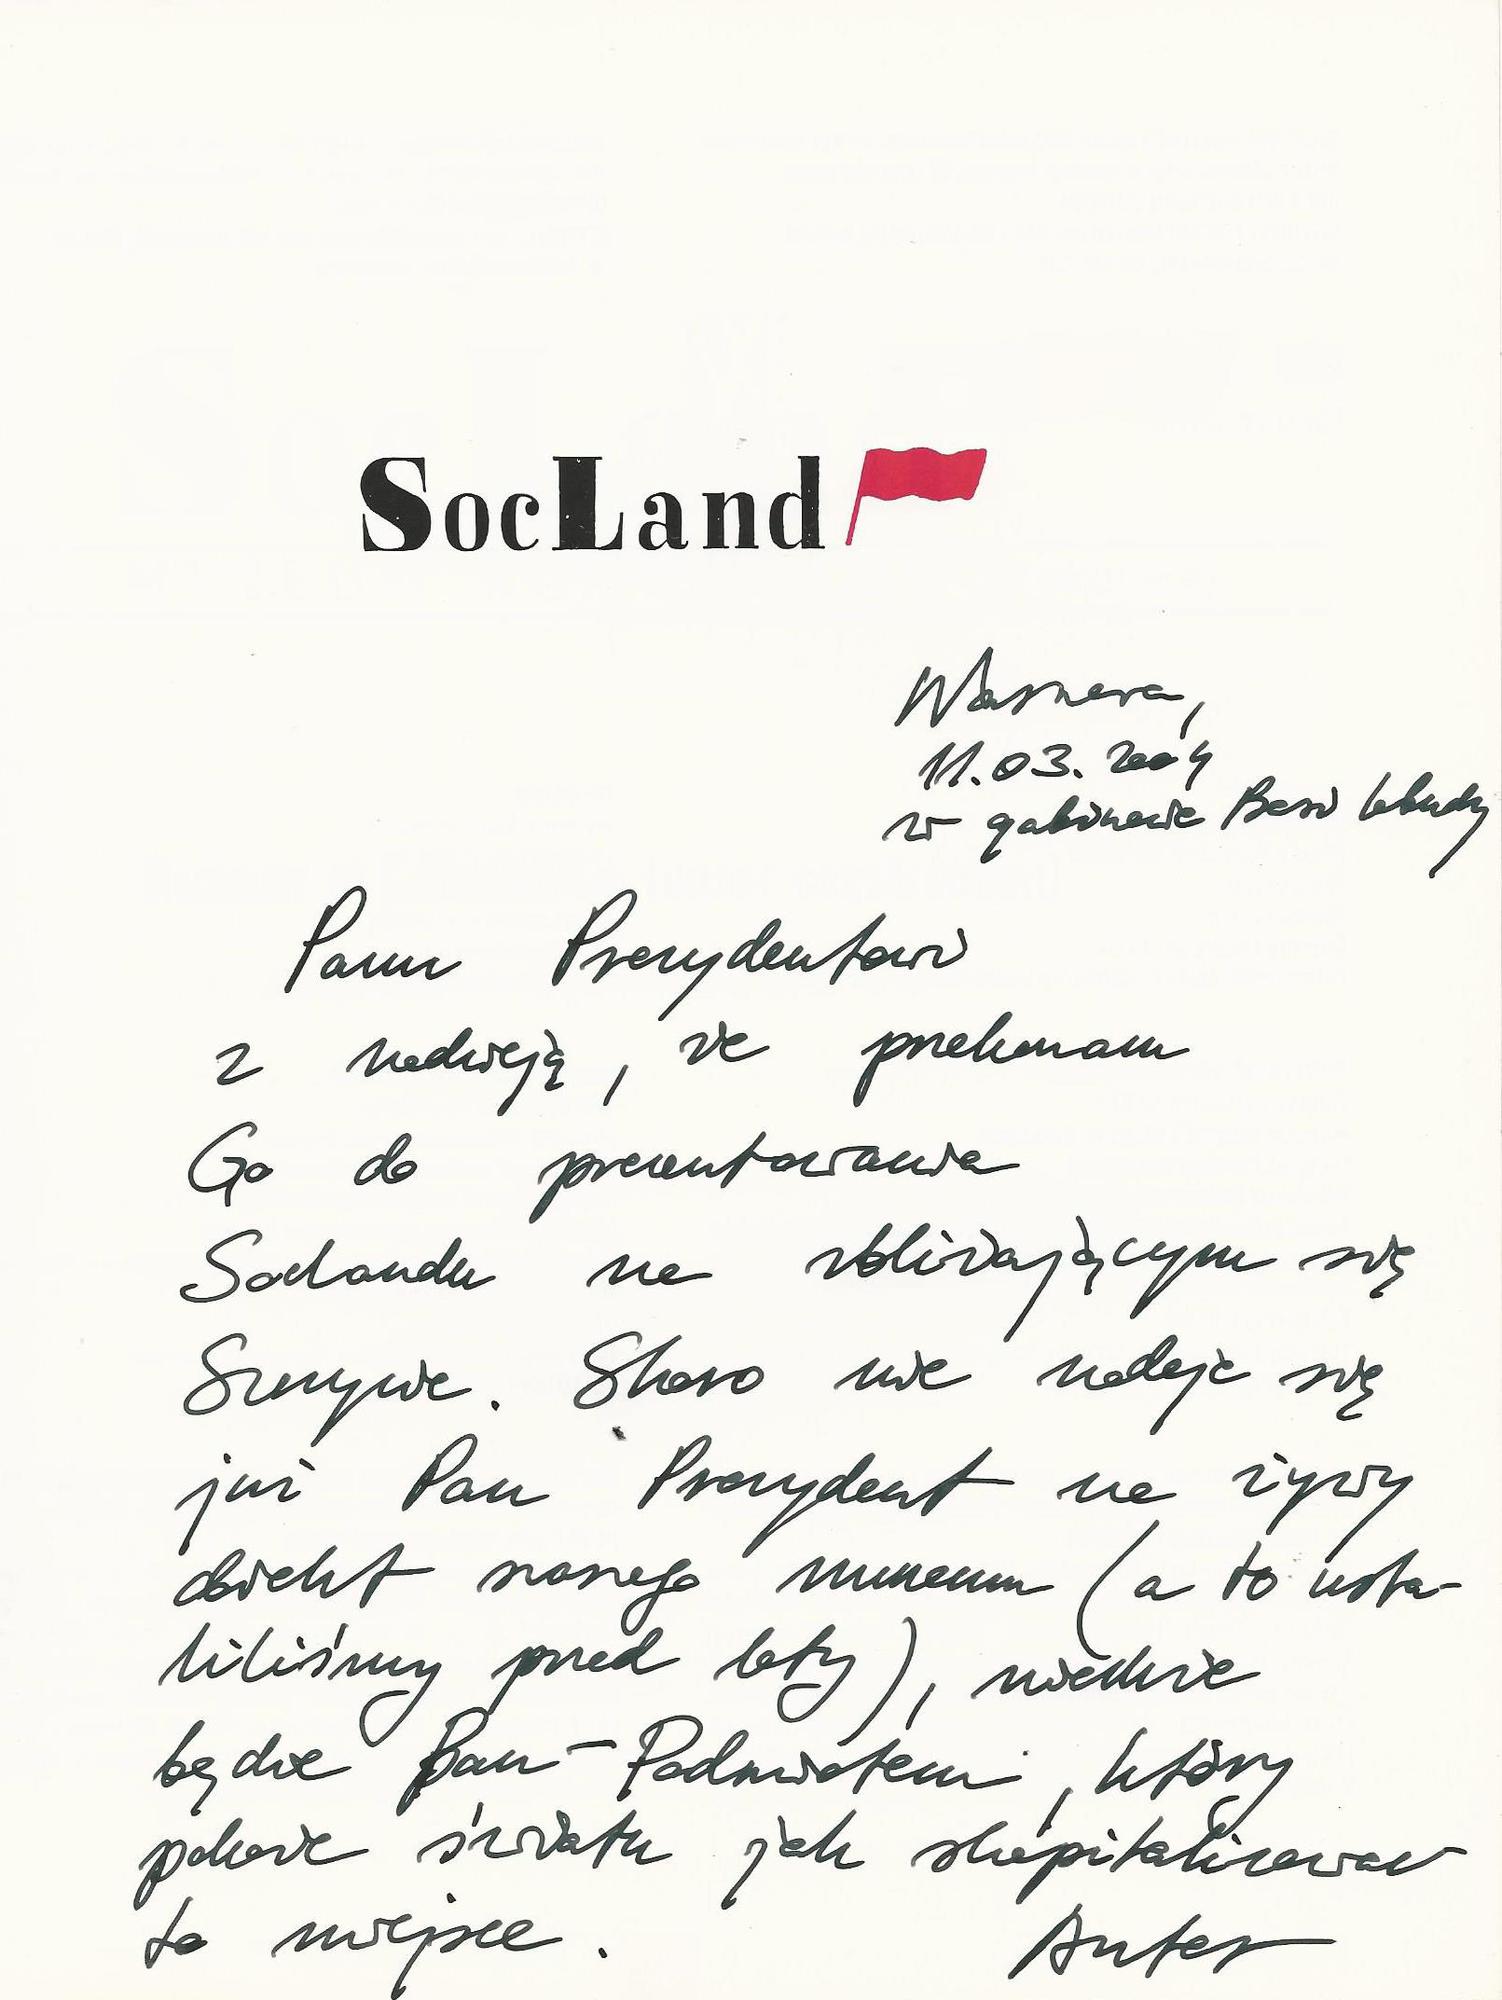 SocLand
Warszawa,
11.03.2004
w gabinecie Basi Labudy
Panu Prezydentowi
z nadzieją, że przekonam
Go do prezentowania
Soclandu na zbliżającym się
Szczycie. Skoro nie nadaje się
już Pan Prezydent na żywy
obiekt naszego muzeum (a to usta-
liliśmy przed laty), niechże
będzie Pan-Podmiotem, który
pokaże światu jak skapitalizować
to miejsce.